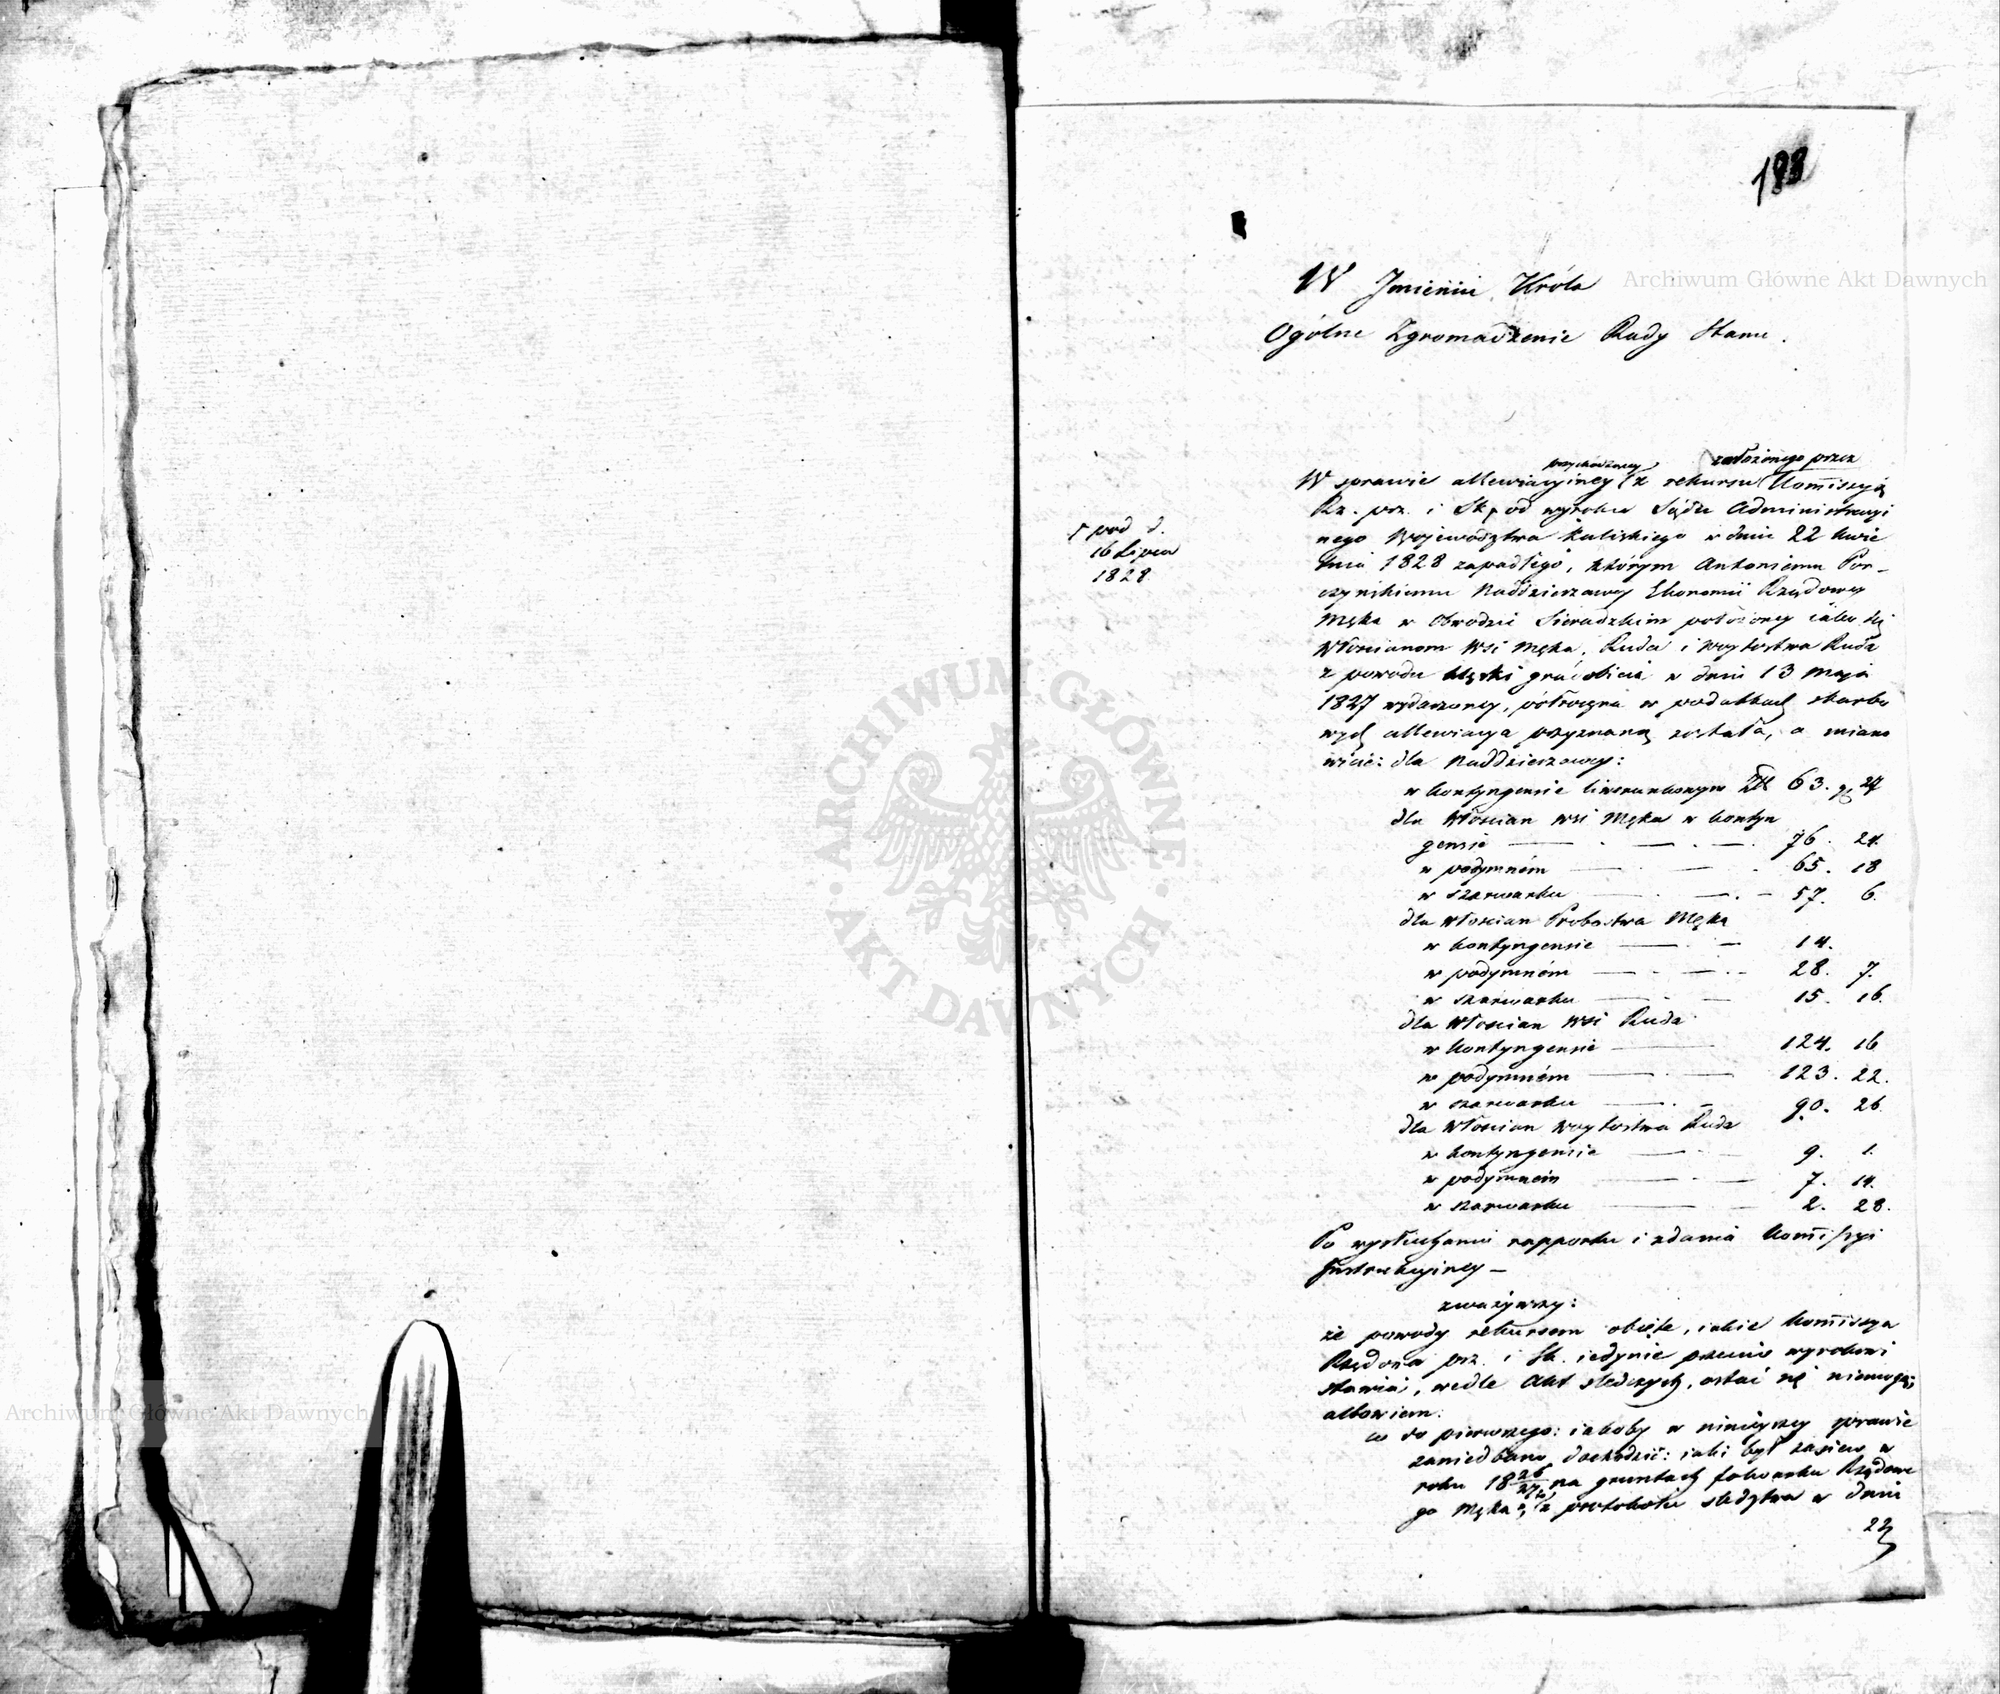 188
W Jmieniu Króla
Ogólne Zgromadzenie Rady Stanu.
przychodzącey założonego przez
W sprawie allewiacyiney z rekursu Kommissyi
Rz. prz. i Sk. od wyroku Sądu Administracyi
nego Województwa Kaliskiego w dniu 22 kwie
tnia 1828 zapadłego, którym Antoniemu Por-
czyńskiemu Naddzierzawcy Ekonomii Rządowey
Męka w Obwodzie Sieradzkim położoney iako też
Włoscianom Wsi Męka, Ruda i Woytostwa Ruda
z powodu klęski gradobicia w dniu 13 Maja
1827 wydarzoney, półroczna w podatkach skarbo
wych allewiacya przyznaną została, a miano
wicie: dla Naddzierzawcy:
w kontyngensie liwerunkowym Złł 63. gr 27
dla Włoscian Wsi Męka w kontyn
gensie — 76. 24.
w podymném — 65. 18
w szarwarku — 57. 6.
dla Włoscian Probostwa Męka
w kontyngensie — 14.
w podymném — 28. 7.
w szarwarku — 15. 16.
dla Włoscian Wsi Ruda
w kontyngensie — 124. 16
w podymném — 123. 22.
w szarwarku — 90. 26.
dla Włoscian Woytostwa Ruda
w kontyngensie — 9. 1.
w podymném — 7. 14.
w szarwarku — 2. 28.
Po wysłuchaniu rapportu i zdania Kommissyi
Instrukcyiney —
zważywszy:
że powody rekursem obięte, iakie Kommissya
Rządowa prz. i Sk. iedynie przeciw wyrokowi
stawia, wedle Akt sledczych, ostać się niemogą;
albowiem:
co do pierwszego: iakoby w ninieyszey sprawie
zaniedbano dochodzić: iaki był zasiew w
roku 18 26/27 na gruntach folwarku Rządowe
go Męka, z protokołu sledztwa w dniu
22
pod d.
16 Lipca
1828.
Archiwum Główne Akt Dawnych
Archiwum Główne Akt Dawnych
ARCHIWUM GŁÓWNE AKT DAWNYCH